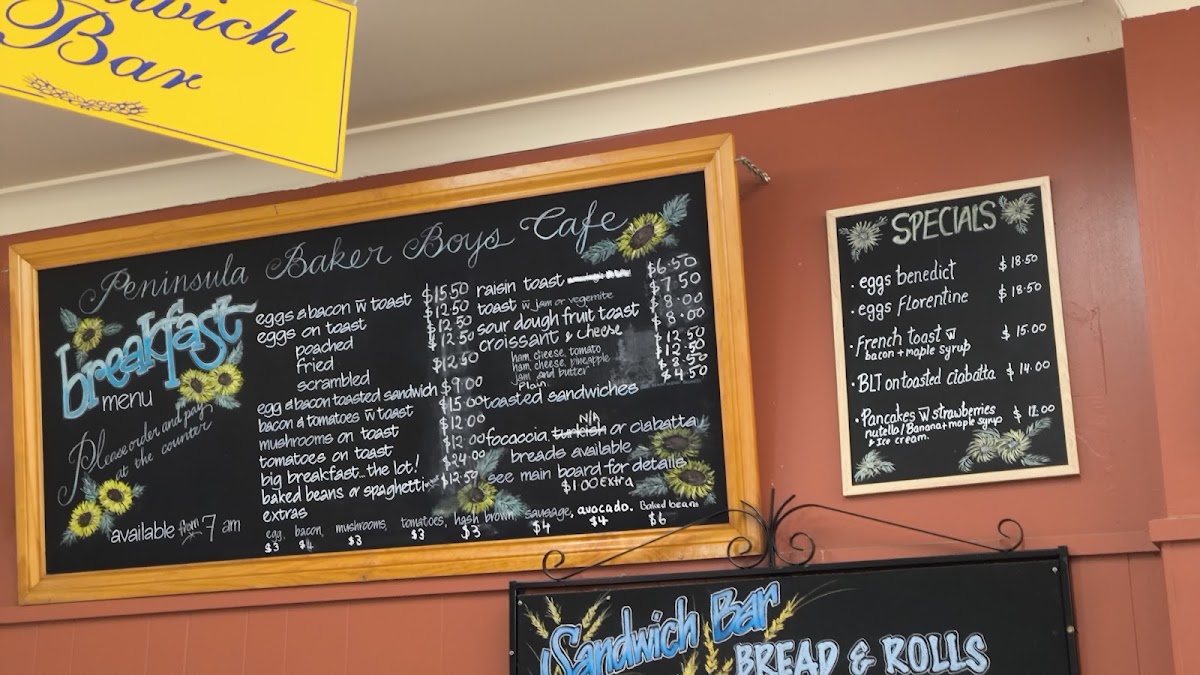 wich
Bar
Peninsula Baker Boys Cafe
breakfast
menu
Please order and pay
at the counter
available from 7 am
eggs & bacon w toast $15.50
eggs on toast $12.50
poached $12.50
fried $12.50
scrambled $12.50
egg & bacon toasted sandwich $9.00
bacon & tomatoes w toast $15.00
mushrooms on toast $12.00
tomatoes on toast $12.00
big breakfast...the lot! $24.00
baked beans or spaghetti $12.50
extras
egg, bacon, mushrooms, tomatoes, hash brown, sausage, avocado. Baked beans
$3 $4 $3 $3 $3 $4 $4 $6
raisin toast $6.50
toast w jam or vegemite $7.50
sour dough fruit toast $8.00
croissant & cheese $8.00
ham, cheese, tomato $12.50
ham, cheese, pineapple $12.50
jam and butter $8.50
Plain $4.50
toasted sandwiches
N/A
focaccia, turkish or ciabatta
breads available
see main board for details
$1.00 extra
SPECIALS
• eggs benedict $18.50
• eggs florentine $18.50
• French toast w $15.00
bacon + maple syrup
• BLT on toasted ciabatta $14.00
• Pancakes w strawberries $12.00
nutello/Banana + maple syrup
& Ice cream.
Sandwich Bar
BREAD & ROLLS